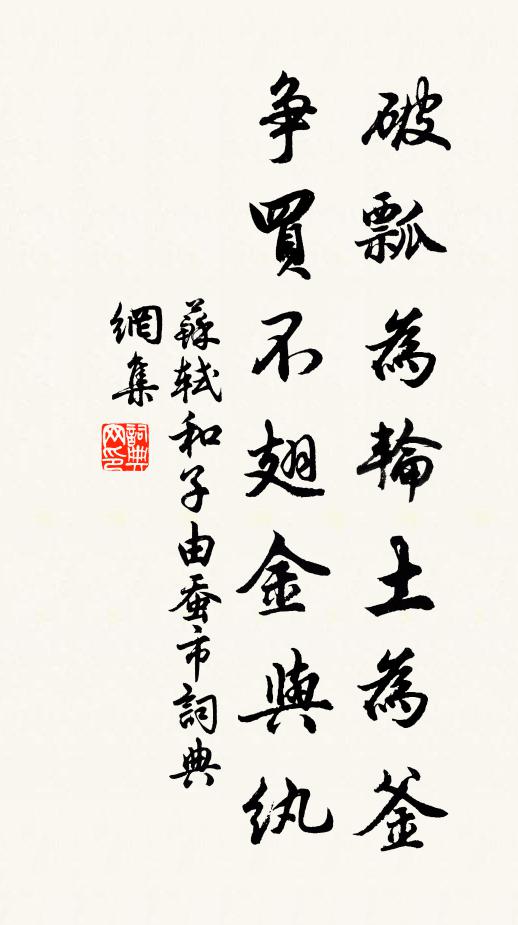 破瓢為輪土為釜
争買不翅金與紈
蘇軾和子由蚕市詞典
網集
詞典
网印